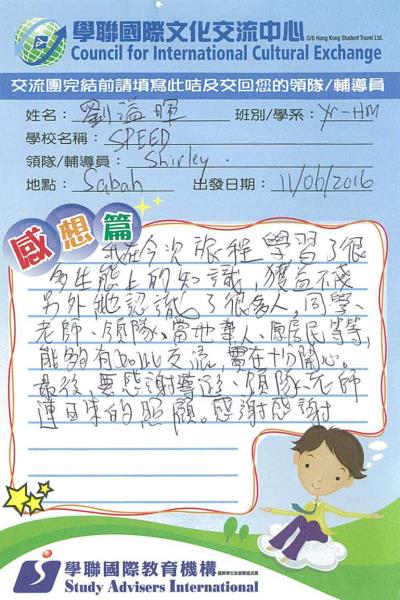 學聯國際文化交流中心 O/B Hong Kong Student Travel Ltd.
Council for International Cultural Exchange
交流團完結前請填寫此咭及交回您的領隊/輔導員
姓名： 劉溢暉 班別/學系： Yr-HM
學校名稱： SPEED
領隊/輔導員： Shirley.
地點： Sabah 出發日期： 11/06/2016
感想篇
我在今次旅程學習了很
多生態上的知識，獲益不淺
另外也認識了很多人，同學、
老師、領隊、當地華人、原居民等等，
能夠有如此交流，實在十分開心。
最後，要感謝導遊、領隊、老師
連日來的照顧。感謝感謝
學聯國際教育機構
Study Advisers International